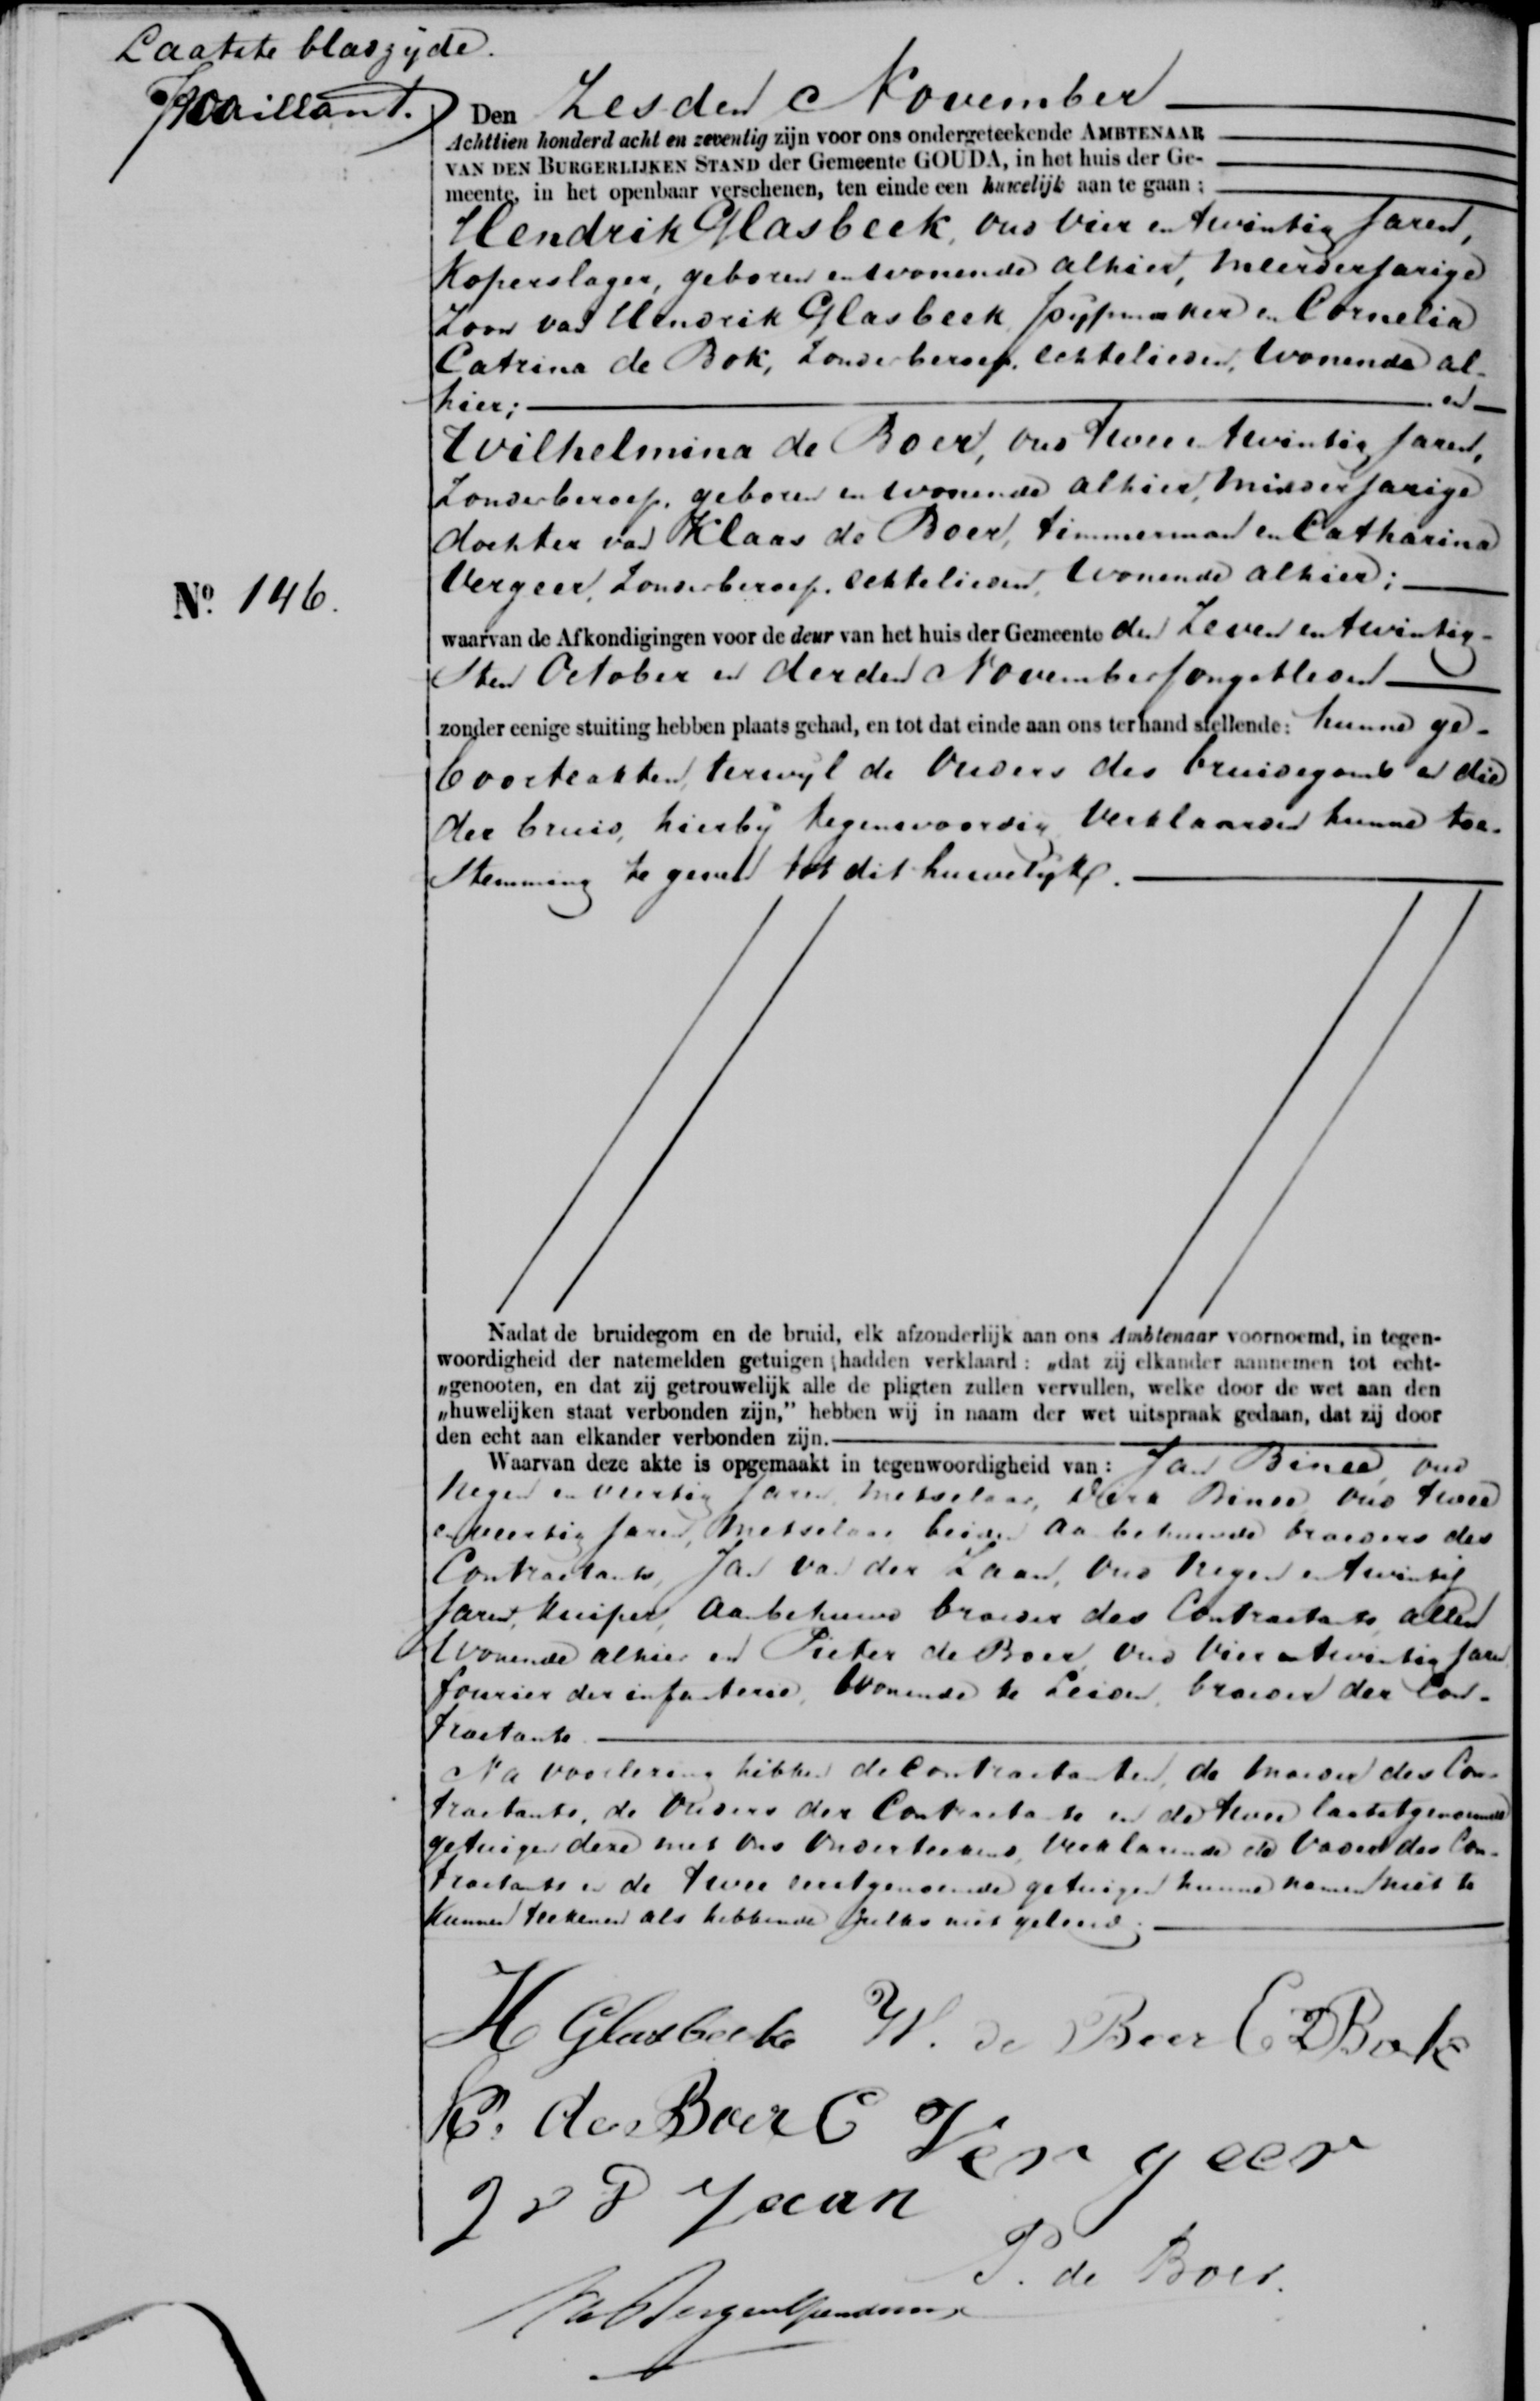 Laatste bladzijde.
Vaillant.
Den Zesden November
Achttien honderd acht en zeventig zijn voor ons ondergeteekende AMBTENAAR
VAN DEN BURGERLIJKEN STAND der Gemeente GOUDA, in het huis der Ge-
meente, in het openbaar verschenen, ten einde een huwelijk aan te gaan;
Hendrik Glasbeek, oud vier en twintig Jaren,
Koperslager, geboren en wonende alhier, meerderjarige
Zoon van Hendrik Glasbeek pijpmaker en Cornelia
Catrina de Bok, Zonder beroep, echtelieden, wonende al-
hier; en
Wilhelmina de Boer, oud Twee en twintig Jaren,
Zonder beroep, geboren en wonende alhier, minderjarige
dochter van Klaas de Boer, timmerman en Catharina
Vergeer, Zonder beroep, echtelieden, wonende alhier;
No. 146.
waarvan de Afkondigingen voor de deur van het huis der Gemeente den Zeven en twintig-
sten October en derden November jongstleden
zonder eenige stuiting hebben plaats gehad, en tot dat einde aan ons ter hand stellende: hunne ge-
boorteakten, terwijl de Ouders des bruidegoms en die
der bruid, hierbij tegenwoordig verklaarden hunne toe-
stemming te geven tot dit huwelijk.
Nadat de bruidegom en de bruid, elk afzonderlijk aan ons Ambtenaar voornoemd, in tegen-
woordigheid der natemelden getuigen hadden verklaard: „dat zij elkander aannemen tot echt-
„genooten, en dat zij getrouwelijk alle de pligten zullen vervullen, welke door de wet aan den
„huwelijken staat verbonden zijn,” hebben wij in naam der wet uitspraak gedaan, dat zij door
den echt aan elkander verbonden zijn.
Waarvan deze akte is opgemaakt in tegenwoordigheid van: Jan Binee, oud
Negen en veertig Jaren, metselaar, Binee oud twee
en veertig Jaren, metselaar beiden aanbehuwde broeders des
Contractants, Jan van der Zaan, oud Negen en twintig
Jaren, kuiper, aanbehuwd broeder des Contractants allen
wonende alhier en Pieter de Boer, oud vier en twintig Jaren
fourier der infanterie, wonende te Leiden, broeder der Con-
tractante
Na voorlezing hebben de Contractanten, de moeder des Con-
tractants, de Ouders der Contractante en de twee laatstgenoemde
getuigen deze met ons onderteekend, verklarende de vader des Con-
tractants en de twee eerstgenoemde getuigen hunne namen niet te
kunnen teekenen als hebbende zulks niet geleerd.
H Glasbeek W. de Boer C D Bok
K. de Boer C Vergeer
J v D Zaan
P. de Boer.